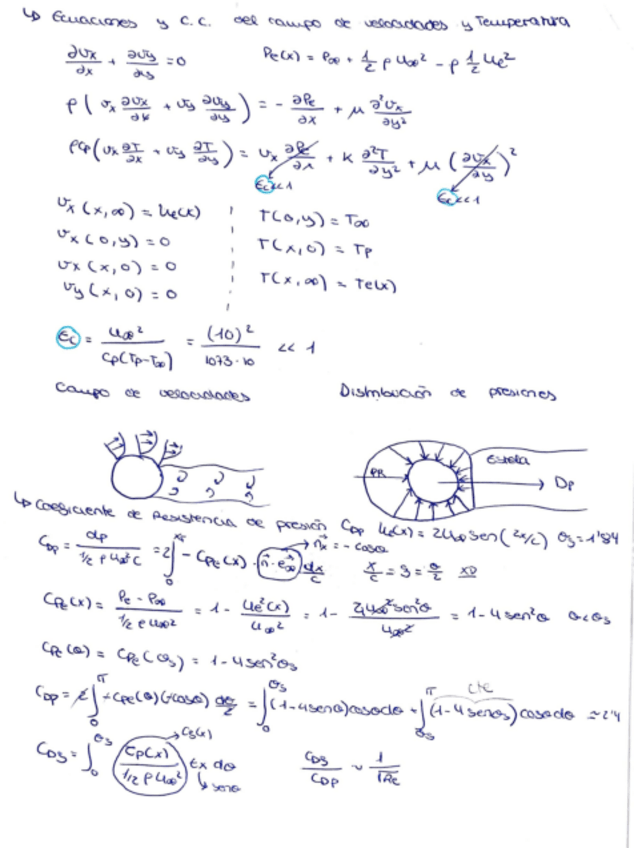 ↳ Ecuaciones y C.C. del campo de velocidades y Temperatura
∂vx/∂x + ∂vy/∂y = 0    Pe(x) = P∞ + 1/2 ρ U∞² - ρ 1/2 Ue²
ρ( vx ∂vx/∂x + vy ∂vy/∂y ) = - ∂Pe/∂x + μ ∂²vx/∂y²
ρCp( vx ∂T/∂x + vy ∂T/∂y ) = vx ∂Pe/∂x + K ∂²T/∂y² + μ (∂vx/∂y)²
Ec<<1    Ec<<1
vx (x,∞) = Ue(x)    T(0,y) = T∞
vx (0,y) = 0    T(x,0) = Tp
vx (x,0) = 0    T(x,∞) = Te(x)
vy (x,0) = 0
Ec = U∞² / Cp(Tp-T∞) = (10)² / 1073·10 << 1
Campo de velocidades    Distribución de presiones
PR    Estela    Dp
↳ Coeficiente de Resistencia de presión CDp    Ue(x) = 2U∞ sen(2x/c)    θs = 1'84
CDp = dp / 1/2 ρ U∞² c = 2∫₀^π - CPe(x) · (n · e∞) dx/c → nx = - cosθ    x/c = s = θ/2
CPe(x) = Pe - P∞ / 1/2 ρ U∞² = 1 - Ue²(x)/U∞² = 1 - 4U∞² sen²θ / U∞² = 1 - 4sen²θ    θ<θs
CPe(θ) = CPe(θs) = 1 - 4sen²θs
CDp = 2∫₀^π - CPe(θ)(-cosθ) dθ/2 = ∫₀^θs (1-4senθ)cosθdθ + ∫θs^π (1-4senθs) cosθdθ ≃ 2'4
cte
CDs = ∫₀^θs (Cp(x) / 1/2 ρ U∞²) tx dθ    CDs/CDp ~ 1/√Re
→ Cs(x)
↳ senθ